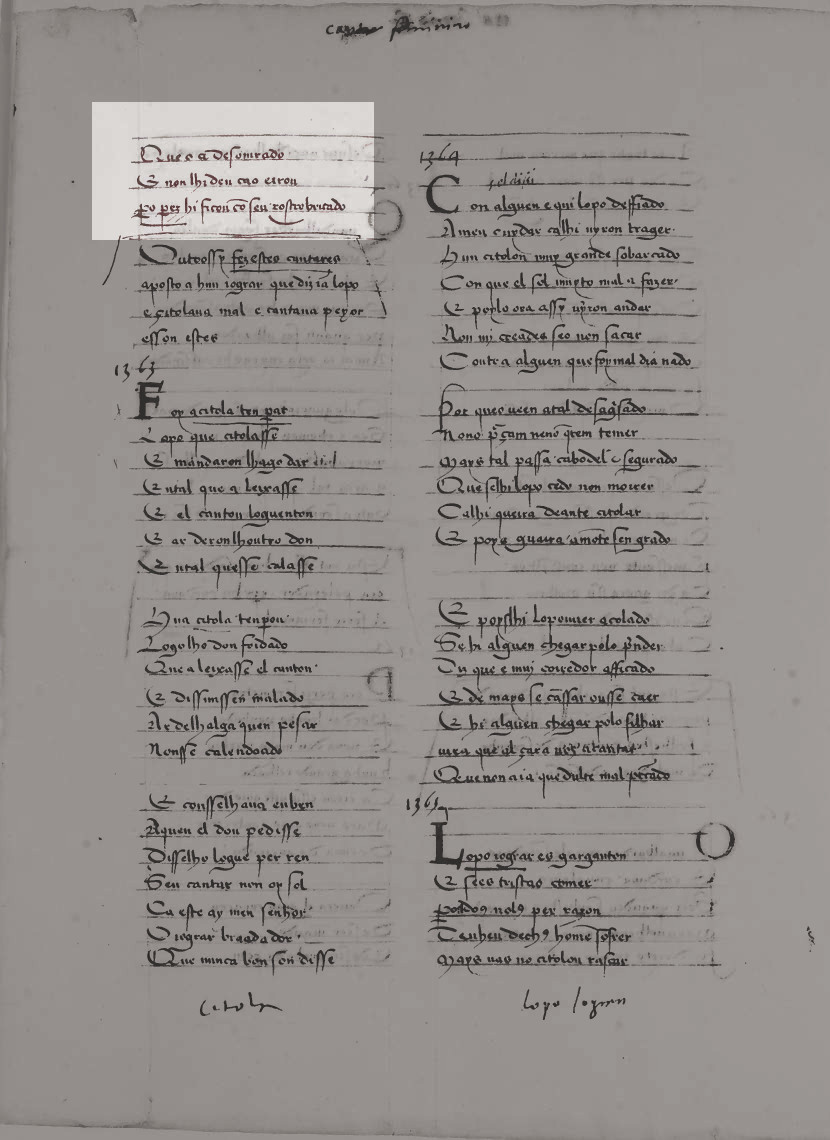 Que o a desonrrado
E non lhi deu cao errou
po per hi ficou cō seu rostro britado
Outrossy fez estes cantares
aposto a huu iograr que dizia lopo
e çitolaua mal e cantaua peyor
esson estes
1363
Foy a citola ten par
Lopo que citolasse
E mandaron lhago dar
E ntal que a leyxasse
E el cantou logu enton
E ar deron lhoutro don
E ntal quesse calasse
Hũa citola tenpou
Logo lho don foy dado
Que a leyxasse el canton
E dissimssen malado
Ar delhalga quen pesar
Nonsse calendoado
E consselhaua eu ben
Aquen el don pedisse
Disselho logue per ren
Seu cantar non oysol
Ca este ay meu senhor
O iograr braadador
Que nunca bon son disse
citola
1364
Con alguen e qui lopo desfiado
A meu cuydar ca lhi uyron trager
Hun citolon muy grande sobarcado
Con que el sol muyto mal a fazer
E poylo ora assy uyron andar
Non mi creades seo non sacar
Contra alguen que foy mal dia nado
Por queo ueen atal desaguisado
Nono preçam neno querem temer
Mays tal passa cabodel e segurado
Que selhi lopo cedo non morrer
Ca lhi querra deante citolar
E poys guarra a morte sen grado
E poys lhi lopouuer acolado
Se hi alguen chegar polo prender
Diz que e mui corredor afficado
E de mays se cansar ousse caer
E hi alguen chegar polo filhar
Que non aia que dulte mal pecado
1365
Lopo iograr es garganton
E sees tristao comer
pero dous nolos per razon
Teuheu dechus home sofrer
Mays uas no citolon rascar
lopo jograr